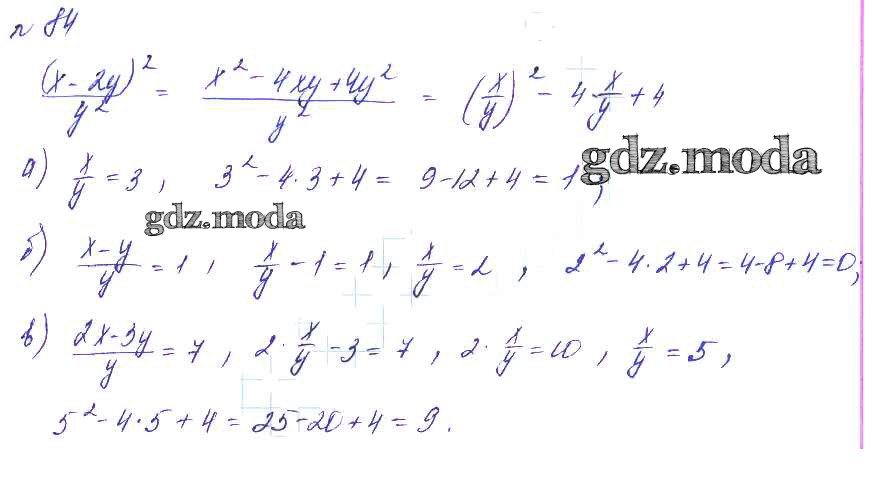 № 84
(x-2y)²/y² = (x²-4xy+4y²)/y² = (x/y)² - 4·x/y + 4
а) x/y = 3, 3²-4·3+4 = 9-12+4 = 1;
gdz.moda
gdz.moda
б) (x-y)/y = 1, x/y - 1 = 1, x/y = 2, 2²-4·2+4=4-8+4=0;
в) (2x-3y)/y = 7, 2·x/y - 3 = 7, 2·x/y = 10, x/y = 5,
5²-4·5+4 = 25-20+4 = 9.